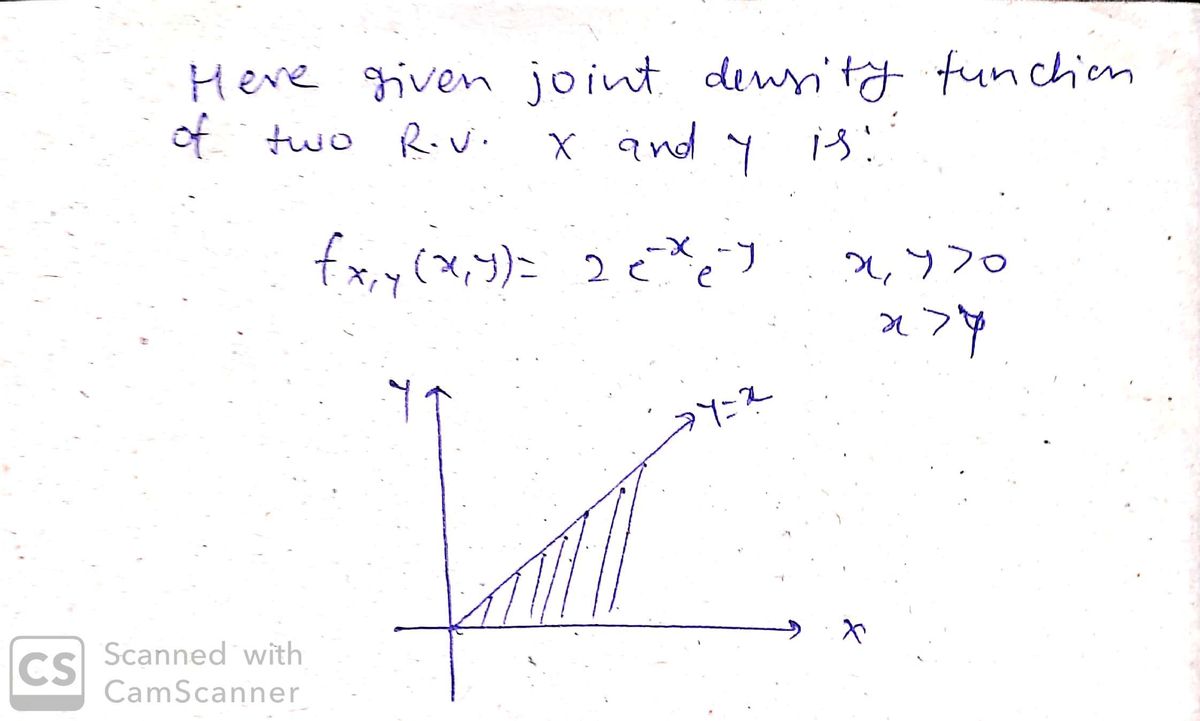 Here given joint density function
of two R.V. X and Y is:
f_{X,Y}(x,y) = 2 e^{-x} e^{-y}   x, y > 0
x > y
Y
y=x
X
CS Scanned with
CamScanner